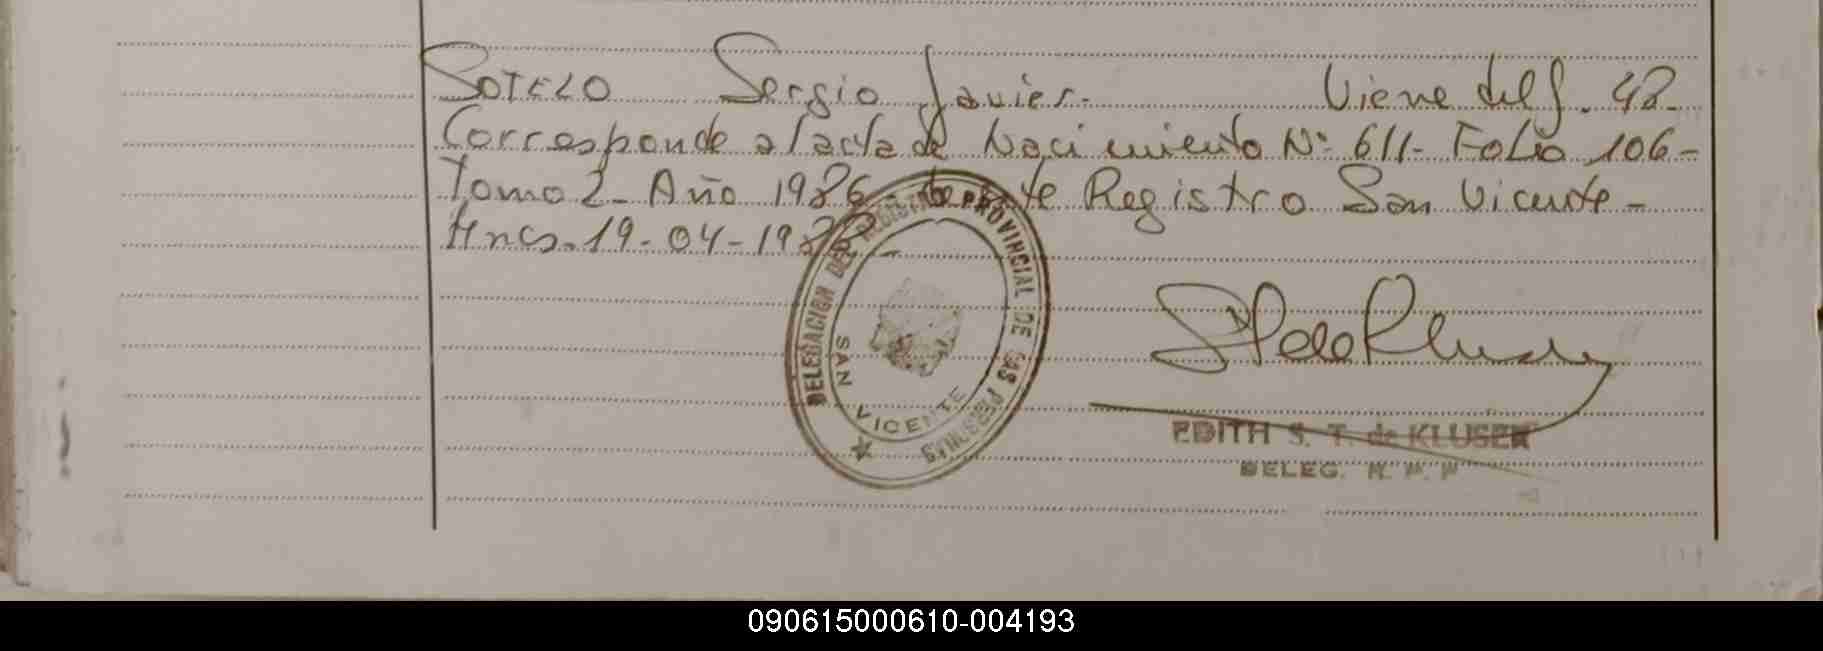 SOTELO Sergio Javier. Viene del f. 42-
Corresponde al acta de Nacimiento Nº 611- Folio 106-
Tomo 2- Año 1986- de este Registro San Vicente-
19-04-1988-
DELEGACION DEL REGISTRO PROVINCIAL DE LAS PERSONAS
SAN VICENTE
EDITH S. T. de KLUSEN
DELEG. R. P. P.
090615000610-004193